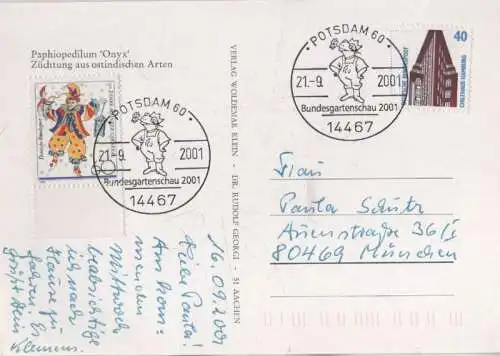 Paphiopedilum 'Onyx'
Züchtung aus ostindischen Arten
POTSDAM 60
21.-9. 2001
Bundesgartenschau 2001
14467
VERLAG WOLDEMAR KLEIN - DR. RUDOLF GEORGI - 51 AACHEN
POTSDAM 60
21.-9. 2001
Bundesgartenschau 2001
14467
40
CHILEHAUS HAMBURG
16.09.2001
Liebe Paula!
Am kom-
menden
Mittwoch
beabsichtige
ich nach
Hause zu
fahren. Es
grüßt Dein
Klemens.
Frau
Paula Schütz
36/I
80469 München